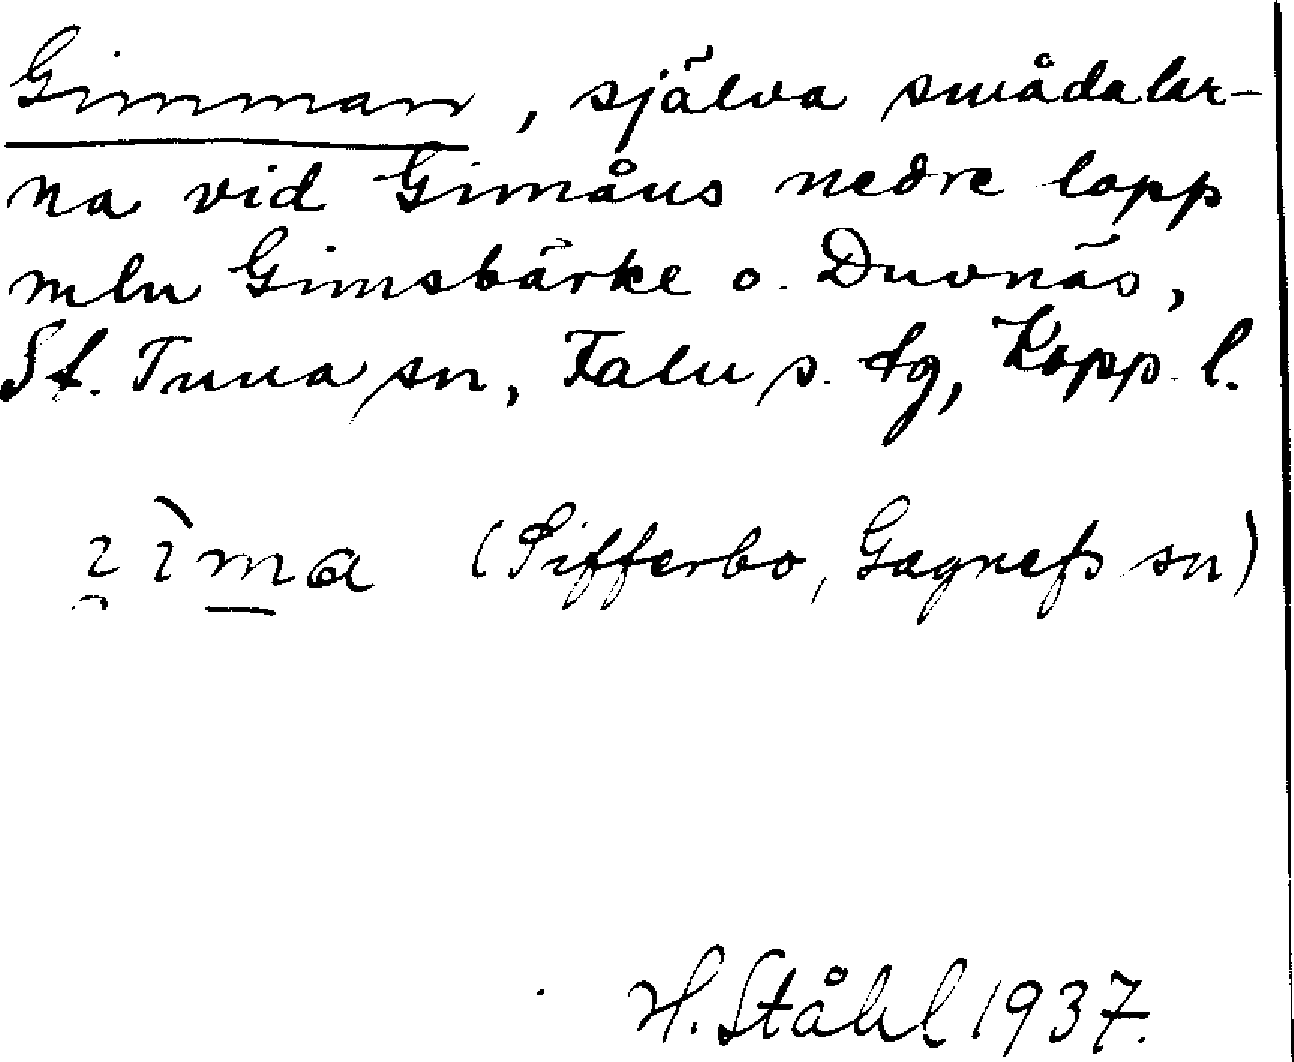 Gimman, själva smådalar-
na vid Gimåns nedre lopp
mln Gimsbärke o. Duvnäs,
St. Tuna sn, Falu s. dg, Kopp. l.
(Sifferbo, Gagnefs sn)
H. Ståhl 1937.